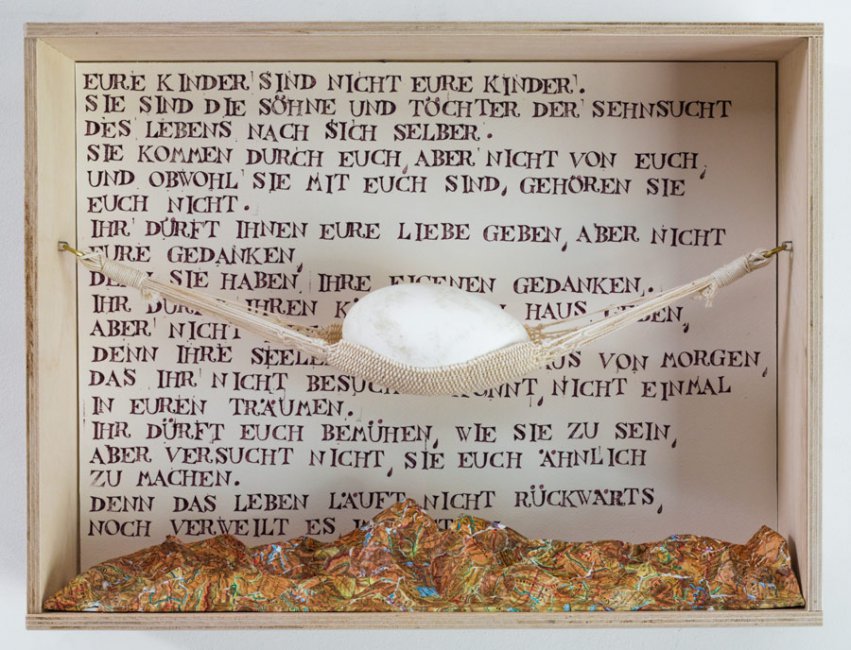 EURE KINDER SIND NICHT EURE KINDER.
SIE SIND DIE SÖHNE UND TÖCHTER DER SEHNSUCHT
DES LEBENS NACH SICH SELBER.
SIE KOMMEN DURCH EUCH, ABER NICHT VON EUCH,
UND OBWOHL SIE MIT EUCH SIND, GEHÖREN SIE
EUCH NICHT.
IHR DÜRFT IHNEN EURE LIEBE GEBEN, ABER NICHT
EURE GEDANKEN,
DENN SIE HABEN IHRE EIGENEN GEDANKEN.
IHR DÜRFT IHREN HAUS GEBEN,
ABER NICHT
DENN IHRE SEELEN VON MORGEN,
DAS IHR NICHT BESUCHEN KÖNNT, NICHT EINMAL
IN EUREN TRÄUMEN.
IHR DÜRFT EUCH BEMÜHEN, WIE SIE ZU SEIN,
ABER VERSUCHT NICHT, SIE EUCH ÄHNLICH
ZU MACHEN.
DENN DAS LEBEN LÄUFT NICHT RÜCKWÄRTS,
NOCH VERWEILT ES